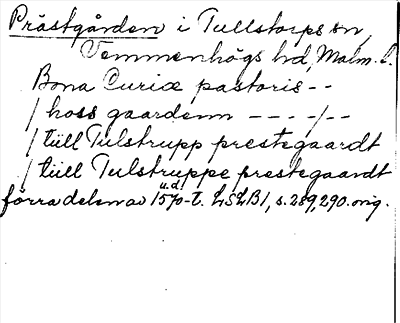 Prästgården i Tullstorps sn,
Vemmenhögs hd, Malm. l.
Bona Curiæ pastoris - -
/ hoss gaardenn - - - - / - -
/ tiill Tulstrupp prestegaardt
/ tiill Tulstruppe prestegaardt
u.d.
förra delen av 1570-t. LSLB1, s. 289, 290. orig.